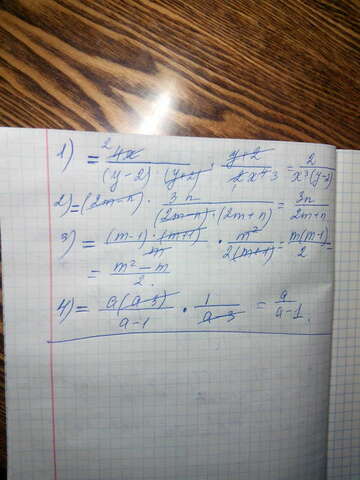 1) = 4x 2 / (y-2)(y+2) · y+2 / 2x⁴ 1 3 = 2 / x³(y-2)
2) = (2m-n) · 3n / (2m-n)·(2m+n) = 3n / 2m+n
3) = (m-1)·(m+1) / m · m² / 2(m+1) = m(m-1) / 2 =
= m² - m / 2.
4) = a(a-3) / a-1 · 1 / a-3 = a / a-1.